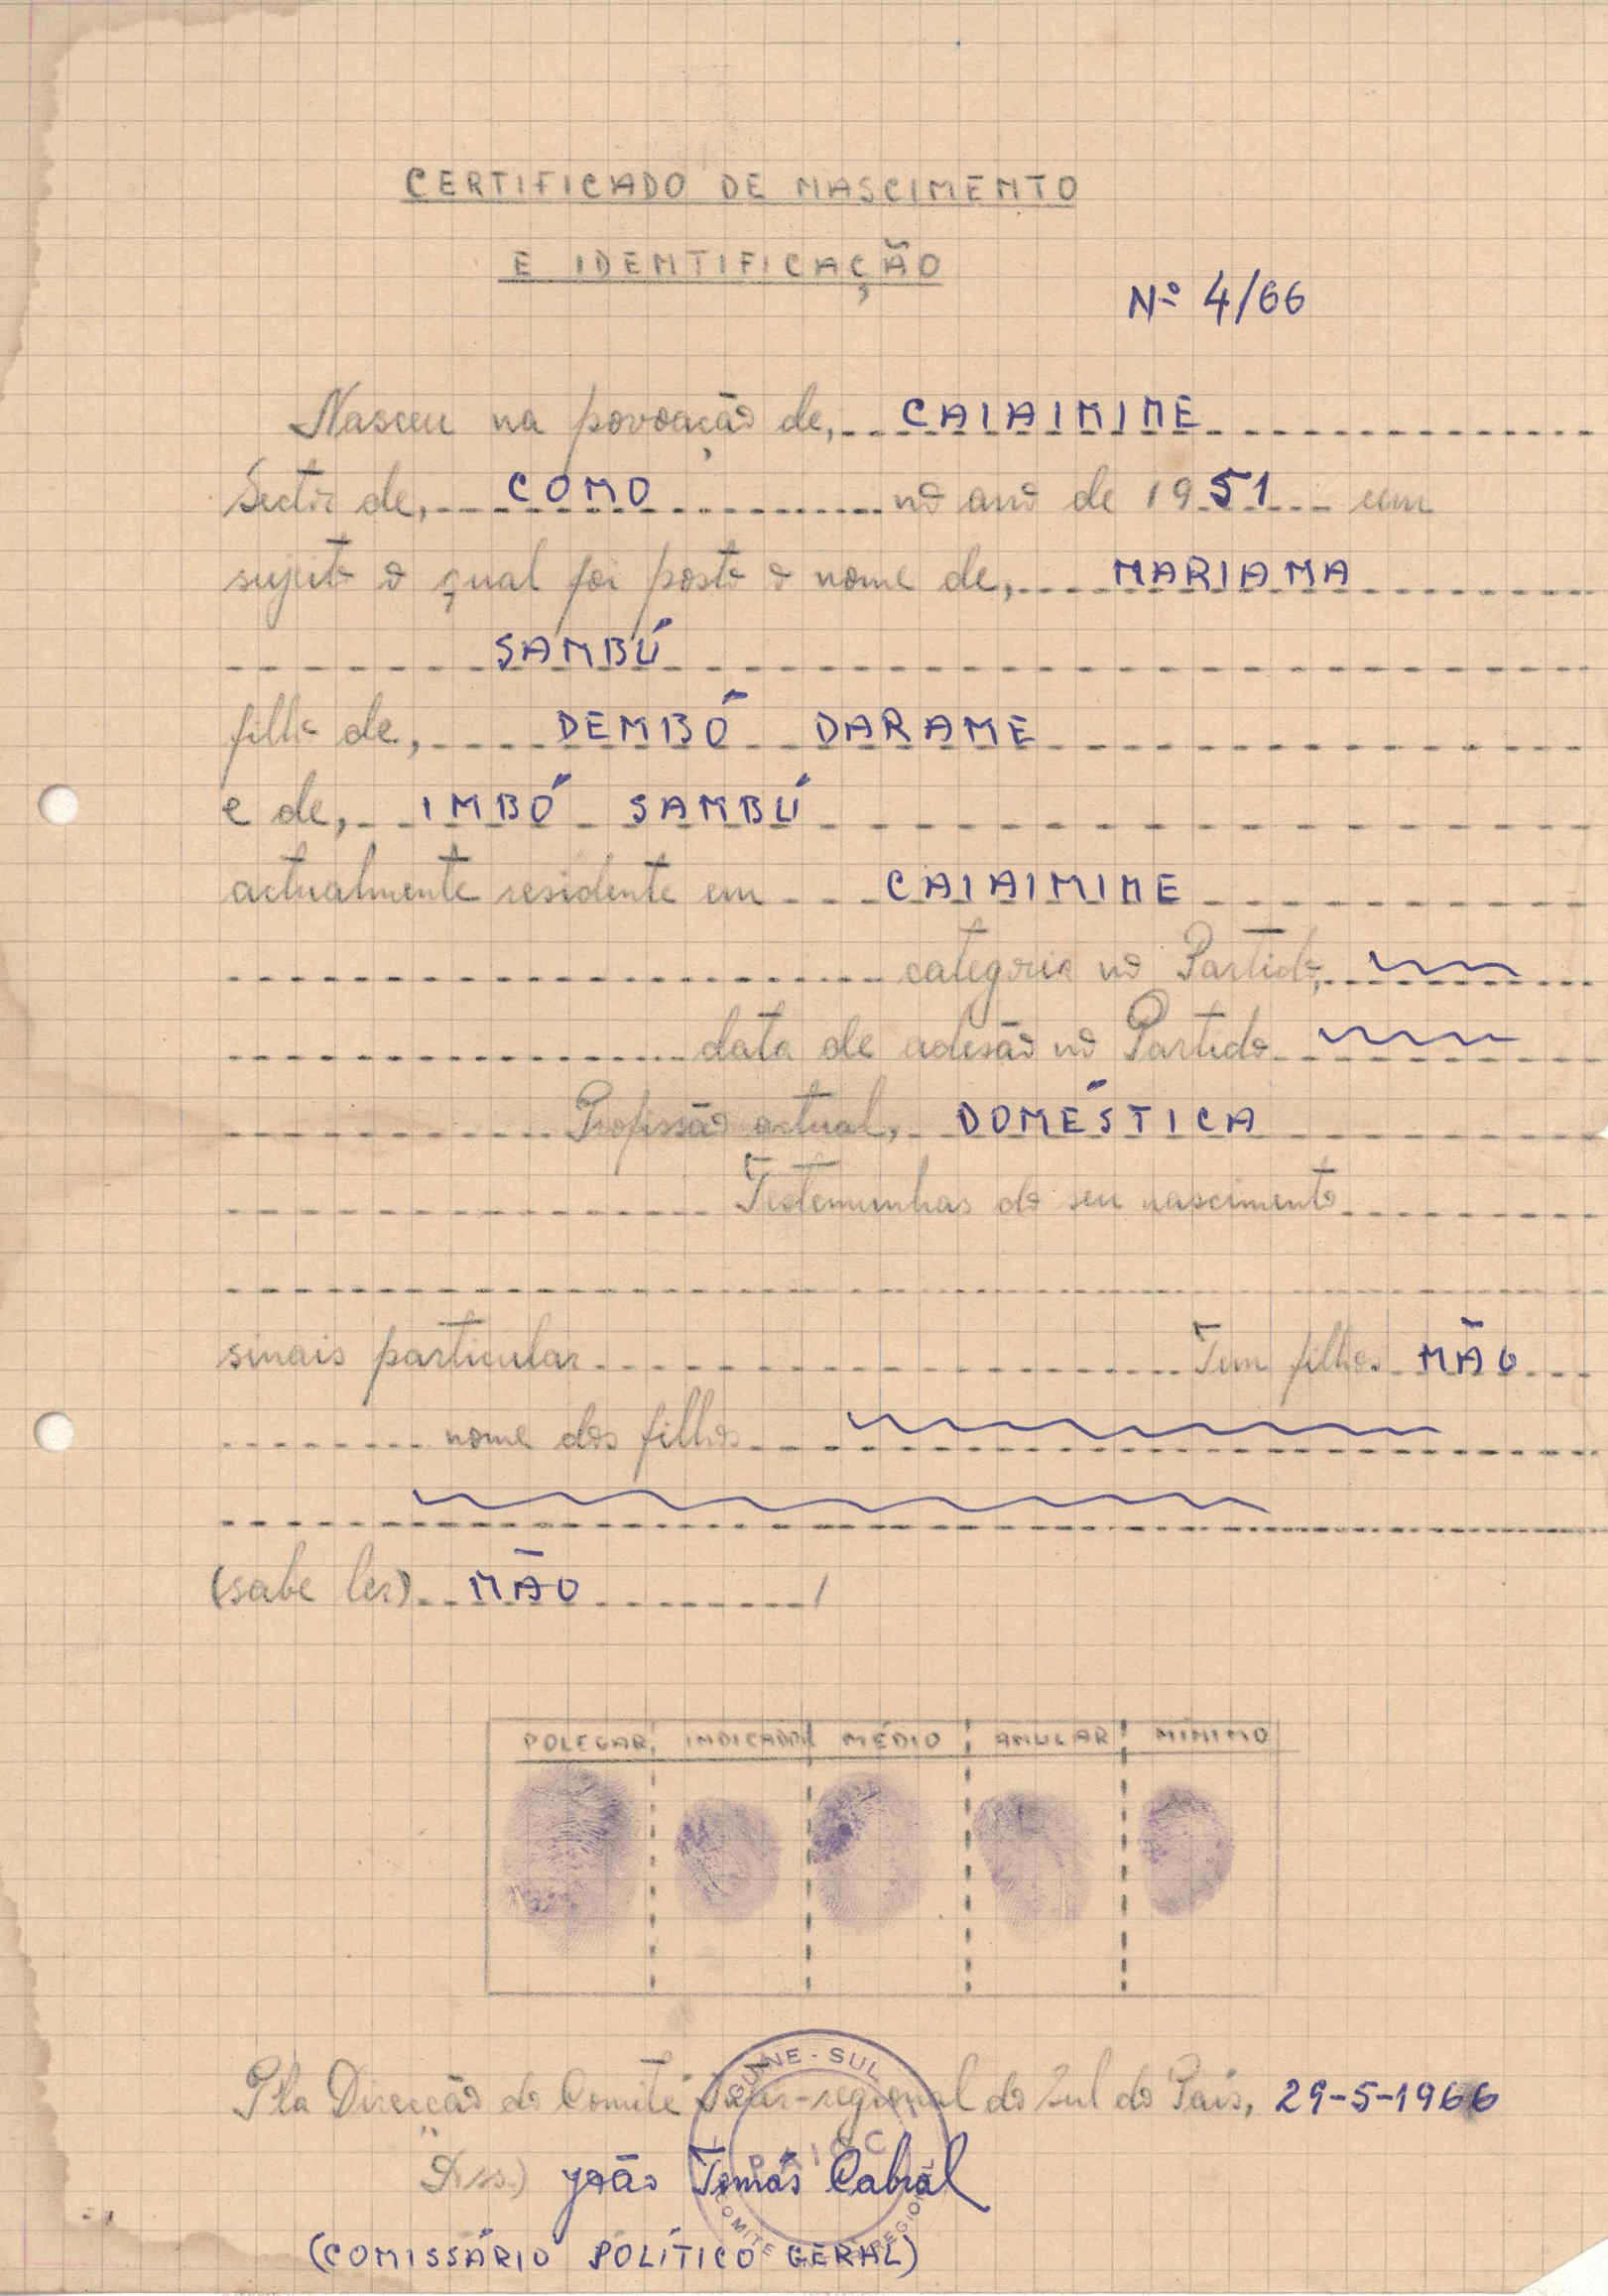 CERTIFICADO DE NASCIMENTO
E IDENTIFICAÇÃO
Nº 4/66
Nasceu na povoação de, CAIAIMINE
Sector de, COMO no ano de 1951 um
sujeito o qual foi posto o nome de, MARIAMA
SAMBÚ
filho de, DEMBÓ DARAME
e de, IMBÓ SAMBÚ
actualmente residente em CAIAIMINE
categoria no Partido,
data de adesão no Partido
Profissão actual, DOMÉSTICA
Testemunhas do seu nascimento
sinais particular Tem filhos NÃO
nome dos filhos
(sabe ler) NÃO /
POLEGAR INDICADOR MÉDIO ANULAR MÍNIMO
P'la Direcção do Comité Inter-regional do Sul do País, 29-5-1966
GUINE - SUL
PAIGC
João Tomás Cabral
COMITE REGIONAL
(COMISSÁRIO POLÍTICO GERAL)